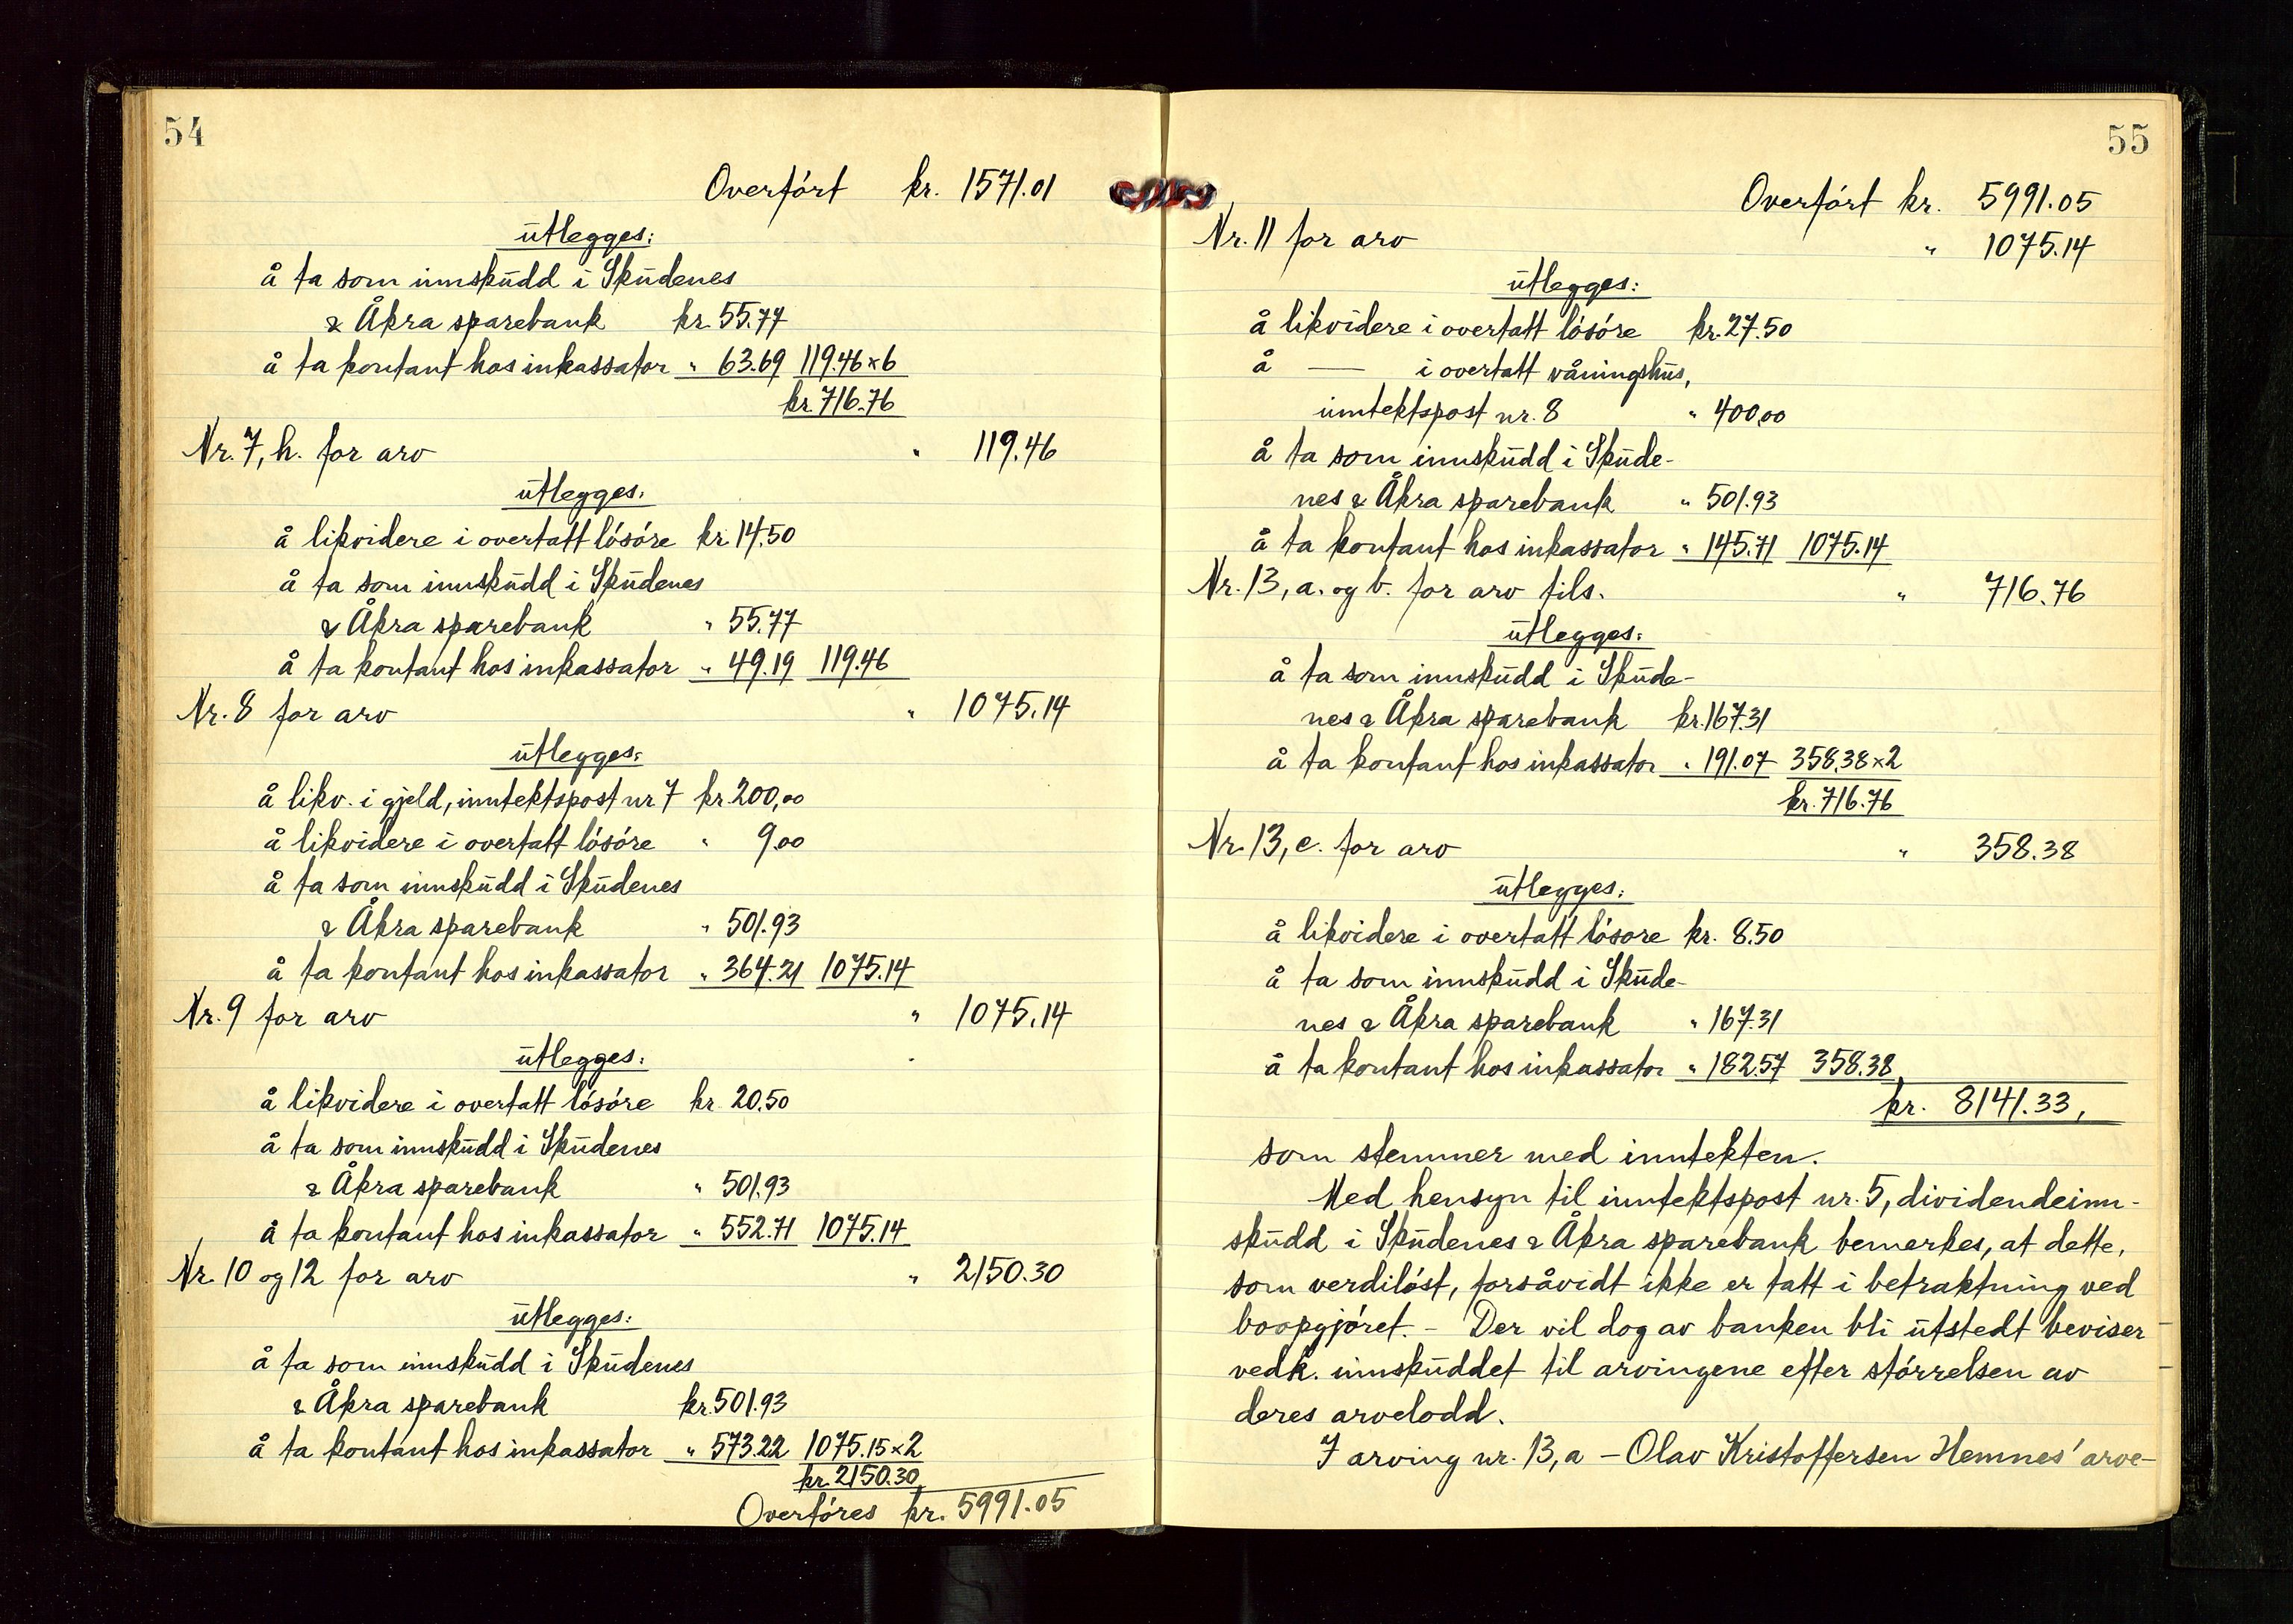 54
Overført kr. 1571.01
utlegges:
å ta som innskudd i Skudenes
& Åkra sparebank kr. 55.77
å ta kontant hos inkassator " 63.69 119.46 x 6
kr. 716.76
Nr. 7, h. for arv " 119.46
utlegges:
å likvidere i overtatt løsøre kr. 14.50
å ta som innskudd i Skudenes
& Åkra sparebank " 55.77
å ta kontant hos inkassator " 49.19 119.46
Nr. 8 for arv " 1075.14
utlegges:
å likv. i gjeld, inntektspost nr 7 kr. 200,00
å likvidere i overtatt løsøre " 9.00
å ta som innskudd i Skudenes
& Åkra sparebank " 501.93
å ta kontant hos inkassator " 364.21 1075.14
Nr. 9 for arv " 1075.14
utlegges:
å likvidere i overtatt løsøre kr. 20.50
å ta som innskudd i Skudenes
& Åkra sparebank " 501.93
å ta kontant hos inkassator " 552.71 1075.14
Nr. 10 og 12 for arv " 2150.30
utlegges:
å ta som innskudd i Skudenes
& Åkra sparebank kr. 501.93
å ta kontant hos inkassator " 573.22 1075.15 x 2
kr. 2150.30
Overføres kr. 5991.05
55
Overført kr. 5991.05
Nr. 11 for arv " 1075.14
utlegges:
å likvidere i overtatt løsøre kr. 27.50
å — i overtatt våningshus,
inntektspost nr. 8 " 400,00
å ta som innskudd i Skude-
nes & Åkra sparebank " 501.93
å ta kontant hos inkassator " 145.71 1075.14
Nr. 13, a. og b. for arv tils. " 716.76
utlegges:
å ta som innskudd i Skude-
nes & Åkra sparebank kr. 167.31
å ta kontant hos inkassator " 191.07 358.38 x 2
kr. 716.76
Nr. 13, c. for arv " 358.38
utlegges:
å likvidere i overtatt løsore kr. 8.50
å ta som innskudd i Skude-
nes & Åkra sparebank " 167.31
å ta kontant hos inkassator " 182.57 358.38
kr. 8141.33,
som stemmer med inntekten.
Med hensyn til inntektspost nr. 5, dividendeinn-
skudd i Skudenes & Åkra sparebank bemerkes, at dette,
som verdiløst, forsåvidt ikke er tatt i betraktning ved
boopgjøret. - Der vil dog av banken bli utstedt beviser
vedk. innskuddet til arvingene efter størrelsen av
deres arvelodd.
I arving nr. 13, a - Olav Kristoffersen Hemnes' arve-